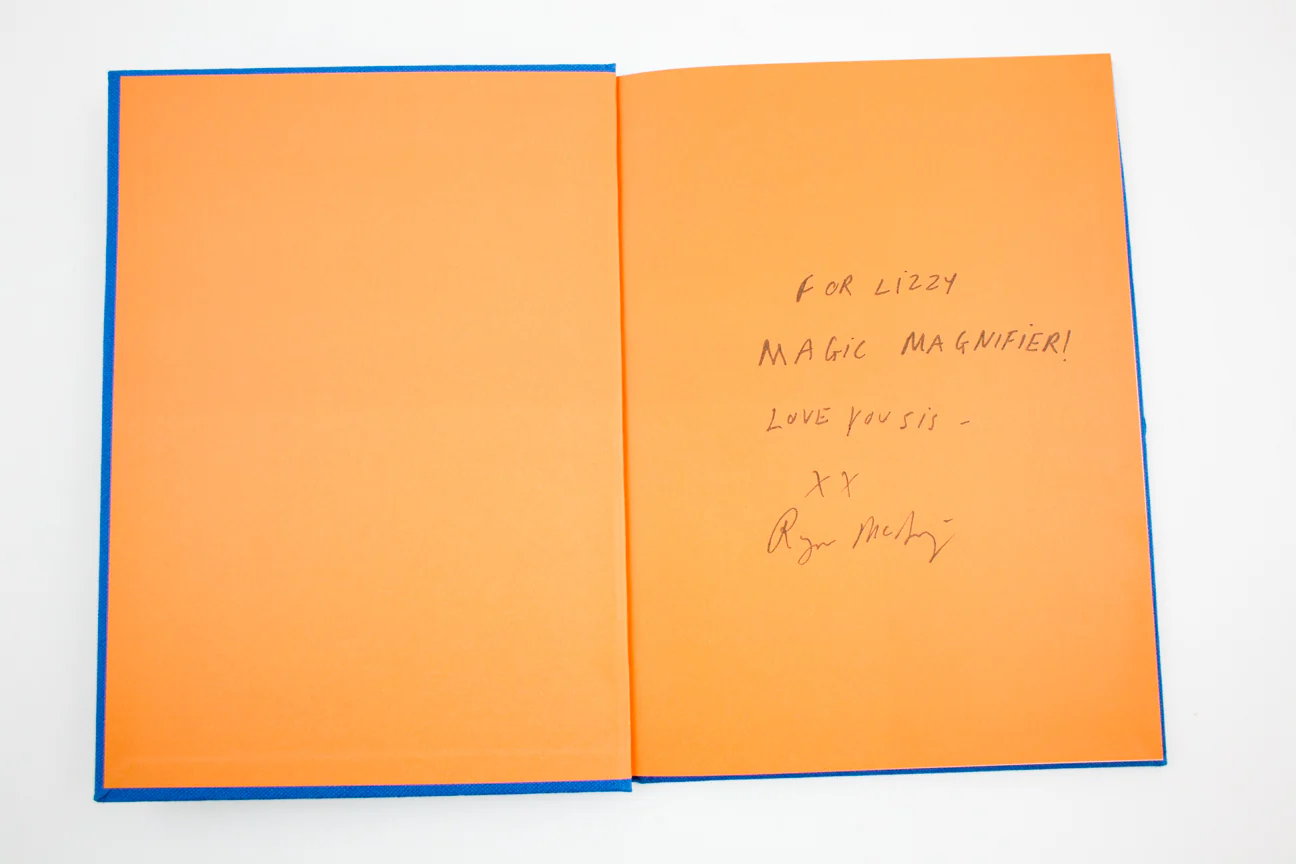 FOR LiZZY
MAGiC MAGNiFiER!
LOVE YOU SiS -
XX
Ryan